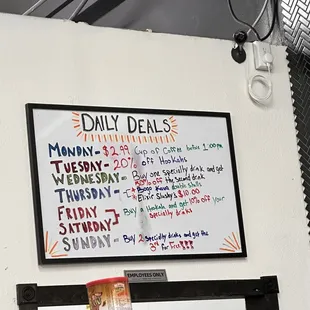 DAILY DEALS
MONDAY- $2.99 Cup of Coffee before 1:00pm
TUESDAY- 20% off Hookahs
WEDNESDAY- Buy one specialty drink and get
50% off the second drink
THURSDAY- Kava double shells
Elixir Slushy's $10.00
FRIDAY
SATURDAY
Buy a Hookah and get 10% off your
specialty drinks
SUNDAY- Buy 2 specialty drinks and get the
3rd for free!!!
EMPLOYEES ONLY